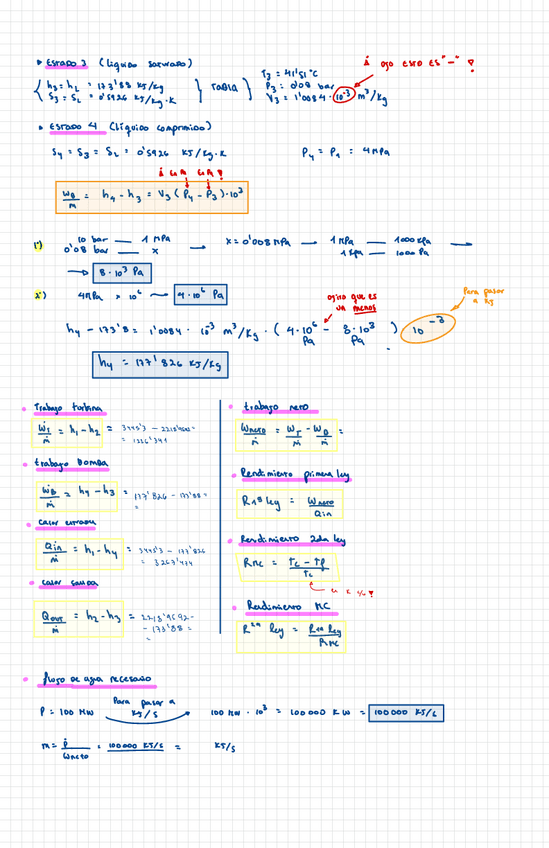 Estado 3 (líquido saturado)
h3 = h2 = 173'88 KJ/Kg
S3 = S2 = 0'5926 KJ/Kg·K
TABLA
T3 = 41'51 °C
P3 = 0'08 bar
V3 = 1'0084 · 10^-3 m³/Kg
ojo esto es "-" !
Estado 4 (líquido comprimido)
S4 = S3 = S2 = 0'5926 KJ/Kg·K
P4 = P1 = 4 MPa
ẆB/ṁ = h4 - h3 = V3 (P4 - P3) · 10^3
1º)
10 bar — 1 MPa
0'08 bar — x
→ x = 0'008 MPa → 1 MPa — 1000 KPa →
1 KPa — 1000 Pa
→ 8·10³ Pa
2º)
4 MPa × 10^6 → 4·10^6 Pa
ojito que es
un menos
Para pasar
a Kg
h4 - 173'8 = 1'0084 · 10^-3 m³/Kg · (4·10^6 Pa - 8·10³ Pa) 10^-3
h4 = 177'826 KJ/Kg
Trabajo turbina
ẆT/ṁ = h1 - h2 =
trabajo Bomba
ẆB/ṁ = h4 - h3 = 177'826 - 173'88 =
=
calor entrada
Qin/ṁ = h1 - h4 =
calor salida
Qout/ṁ = h2 - h3 =
- 173'88 =
=
trabajo neto
Ẇneto/ṁ = ẆT/ṁ - ẆB/ṁ =
Rendimiento primera ley
R 1ª ley = Wneto/Qin
Rendimiento 2da ley
RMC = Tc - Tf / Tc
Rendimiento MC
R 2ª ley = R 1ª ley / RMC
flujo de agua necesario
P = 100 MW
Para pasar a
KJ/s
100 MW · 10³ = 100000 KW = 100000 KJ/s
ṁ = P/Wneto = 100000 KJ/s / = KJ/s